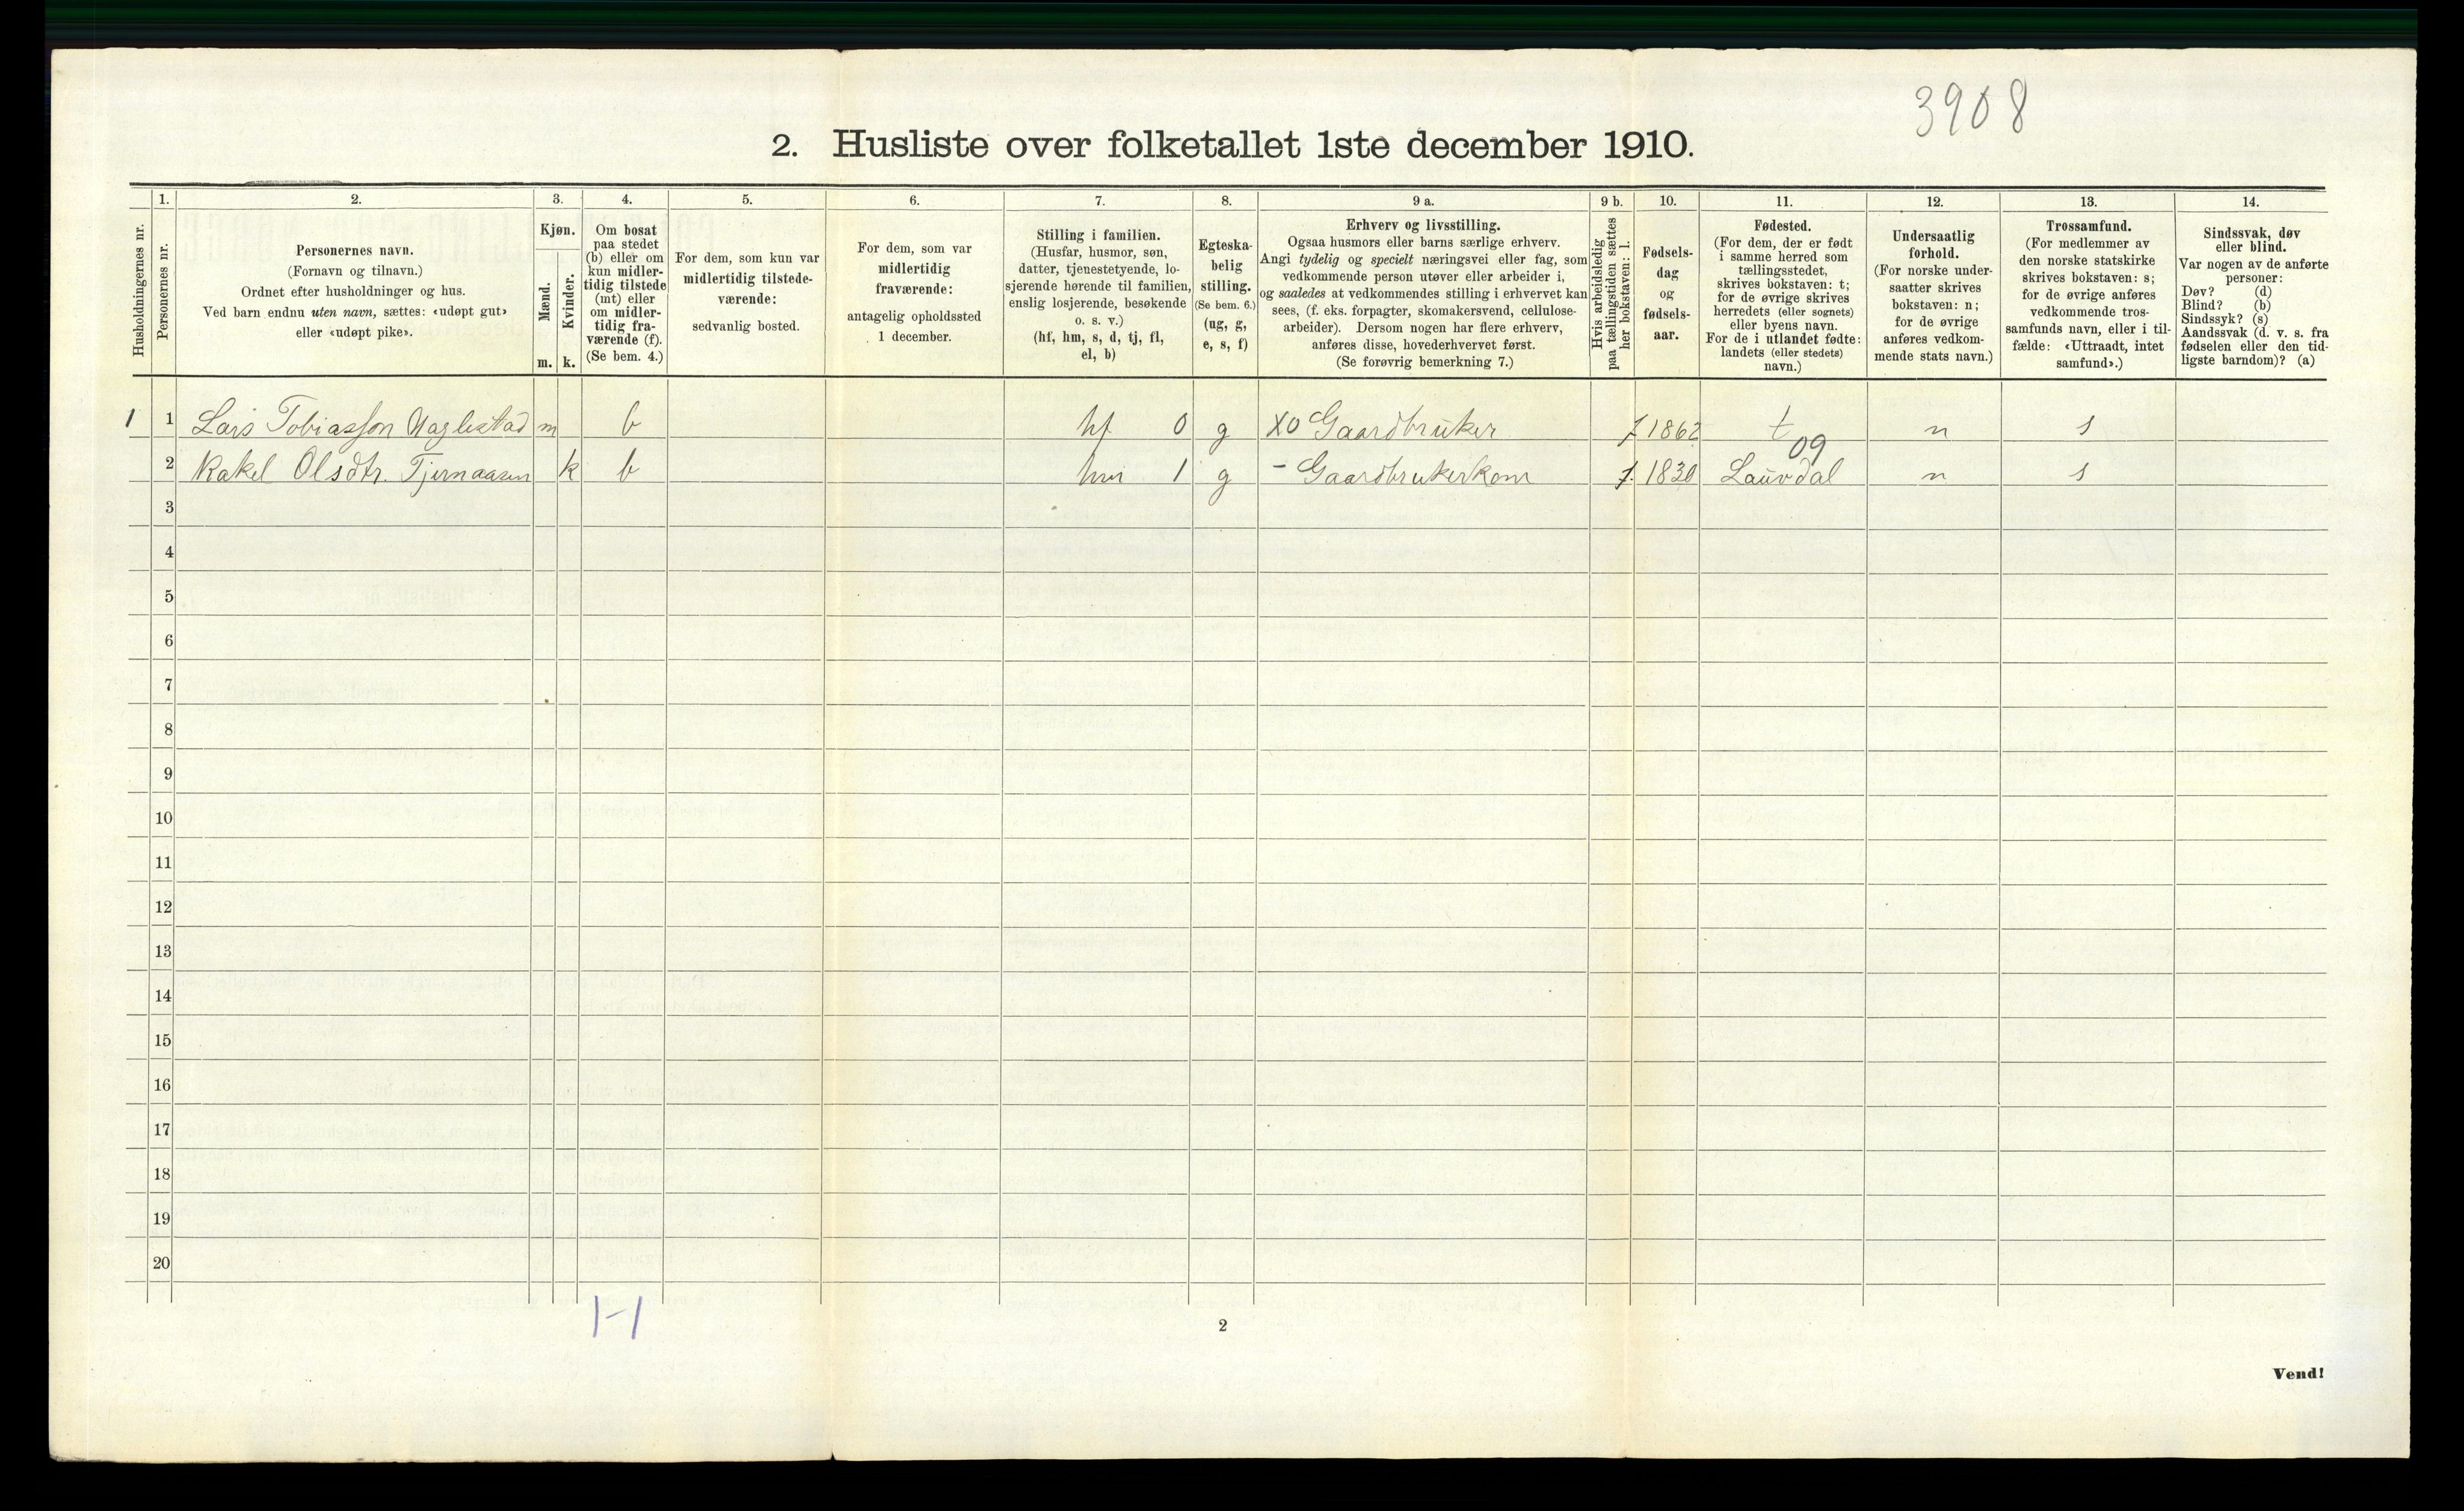 3908
2. Husliste over folketallet 1ste december 1910.
Husholdningernes nr.
1.
Personernes nr.
2.
Personernes navn.
(Fornavn og tilnavn.)
Ordnet efter husholdninger og hus.
Ved barn endnu uten navn, sættes: «udøpt gut»
eller «udøpt pike».
3.
Kjøn.
Mænd.
Kvinder.
m. k.
4.
Om bosat
paa stedet
(b) eller om
kun midler-
tidig tilstede
(mt) eller
om midler-
tidig fra-
værende (f).
(Se bem. 4.)
5.
For dem, som kun var
midlertidig tilstede-
værende:
sedvanlig bosted.
6.
For dem, som var
midlertidig
fraværende:
antagelig opholdssted
1 december.
7.
Stilling i familien.
(Husfar, husmor, søn,
datter, tjenestetyende, lo-
sjerende hørende til familien,
enslig losjerende, besøkende
o. s. v.)
(hf, hm, s, d, tj, fl,
el, b)
8.
Egteska-
belig
stilling.
(Se bem. 6.)
(ug, g,
e, s, f)
9 a.
Erhverv og livsstilling.
Ogsaa husmors eller barns særlige erhverv.
Angi tydelig og specielt næringsvei eller fag, som
vedkommende person utøver eller arbeider i,
og saaledes at vedkommendes stilling i erhvervet kan
sees, (f. eks. forpagter, skomakersvend, cellulose-
arbeider). Dersom nogen har flere erhverv,
anføres disse, hovederhvervet først.
(Se forøvrig bemerkning 7.)
9 b.
Hvis arbeidsledig
paa tællingstiden sættes
her bokstaven: l.
10.
Fødsels-
dag
og
fødsels-
aar.
11.
Fødested.
(For dem, der er født
i samme herred som
tællingsstedet,
skrives bokstaven: t;
for de øvrige skrives
herredets (eller sognets)
eller byens navn.
For de i utlandet fødte:
landets (eller stedets)
navn.)
12.
Undersaatlig
forhold.
(For norske under-
saatter skrives
bokstaven: n;
for de øvrige
anføres vedkom-
mende stats navn.)
13.
Trossamfund.
(For medlemmer av
den norske statskirke
skrives bokstaven: s;
for de øvrige anføres
vedkommende tros-
samfunds navn, eller i til-
fælde: «Uttraadt, intet
samfund».)
14.
Sindssvak, døv
eller blind.
Var nogen av de anførte
personer:
Døv? (d)
Blind? (b)
Sindssyk? (s)
Aandssvak (d. v. s. fra
fødselen eller den tid-
ligste barndom)? (a)
1 1 Lars Tobiassson Haglestad m b hf 0 g X0 Gaardbruker 1862 t n s
09
2 Rakel Olsdtr. Tjernaasen k b hm 1 g - Gaardbrukerkone 1830 Lauvdal n s
3
4
5
6
7
8
9
10
11
12
13
14
15
16
17
18
19
20
1-1
2
Vend!